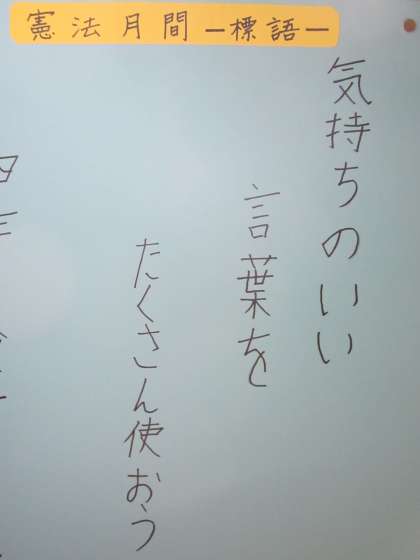 憲法月間ー標語ー
気持ちのいい
言葉を
たくさん使おう